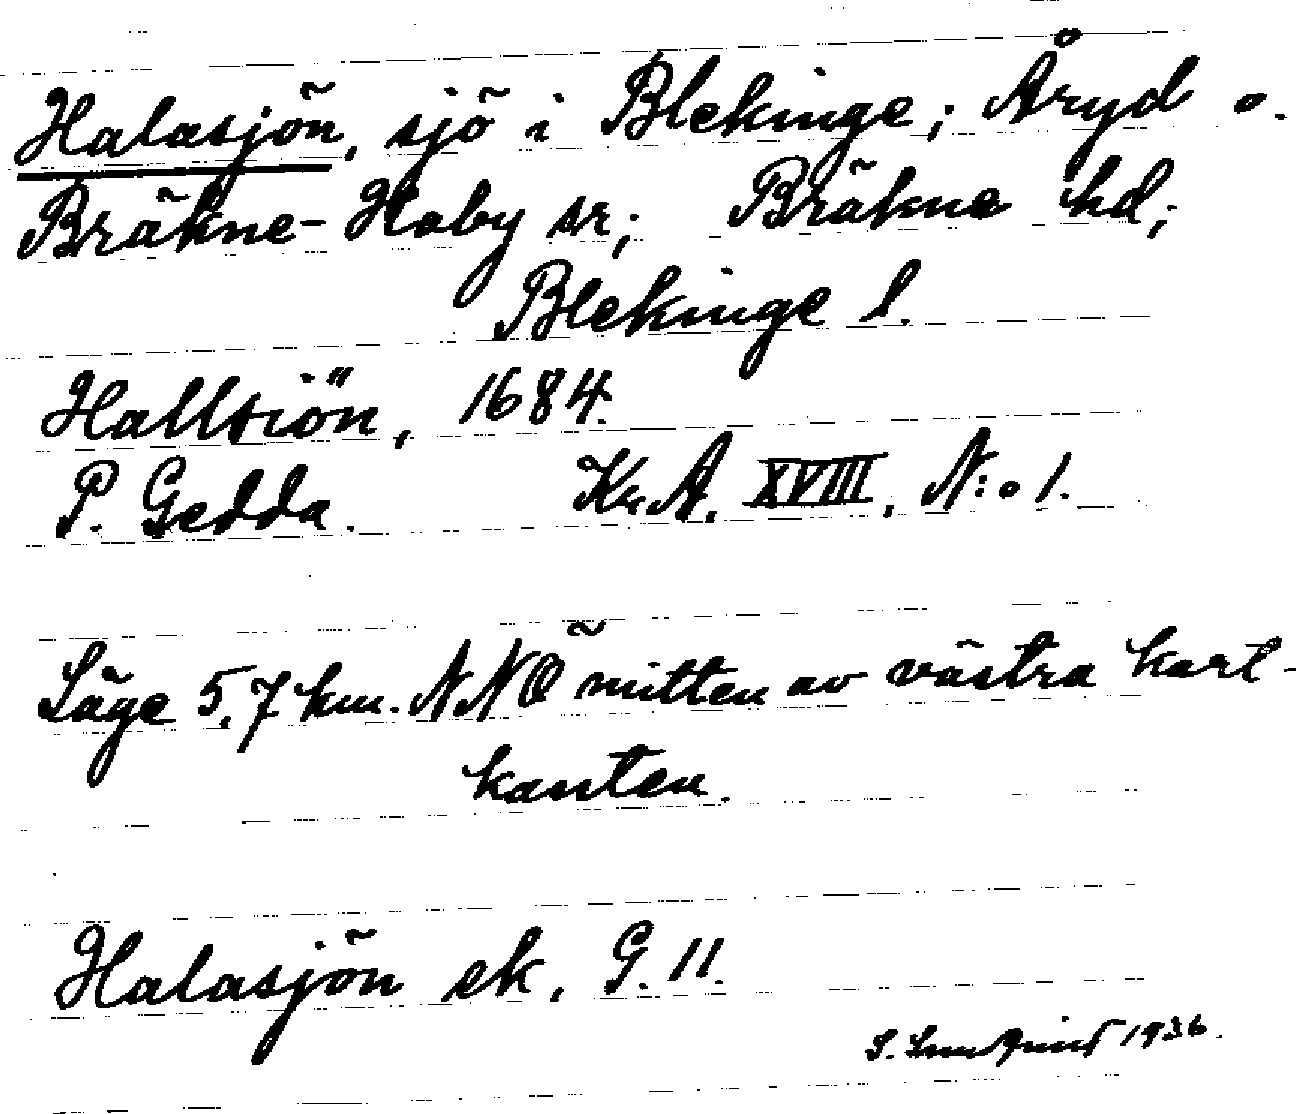 Halasjön, sjö i Blekinge; Åryd o.
Bräkne-Hoby sr; Bräkne hd;
Blekinge l.
Hallsiön, 1684.
P. Gedda. Kr.A. XVIII, N:o 1.
Läge 5,7 km. NNÖ mitten av västra kart-
kanten.
Halasjön ek. G. 11.
S. 1936.